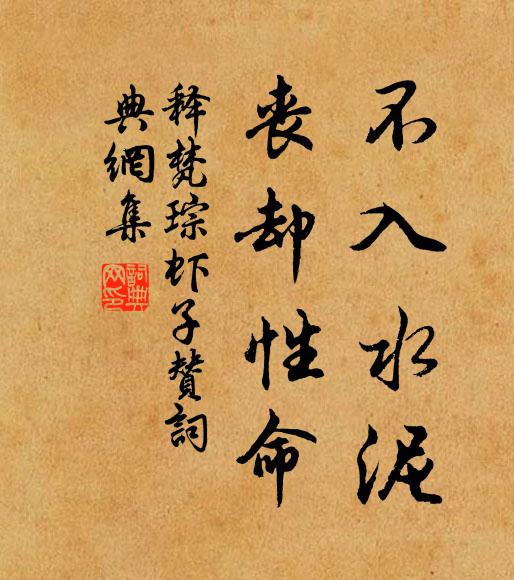 不入水泥
丧却性命
释梵琮虾子赞詞
典網集
詞典
网印